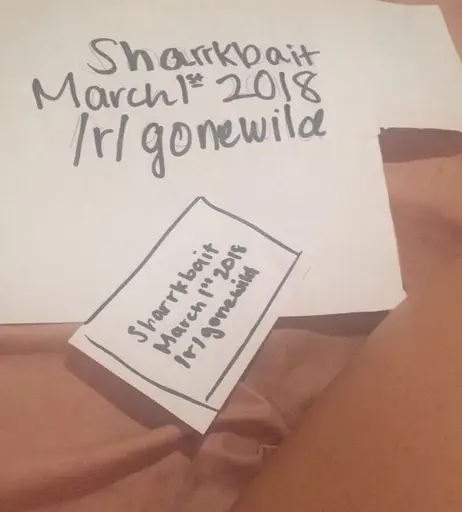 Sharrkbait
March 1st 2018
/r/gonewild
Sharrkbait
March 1st 2018
/r/gonewild